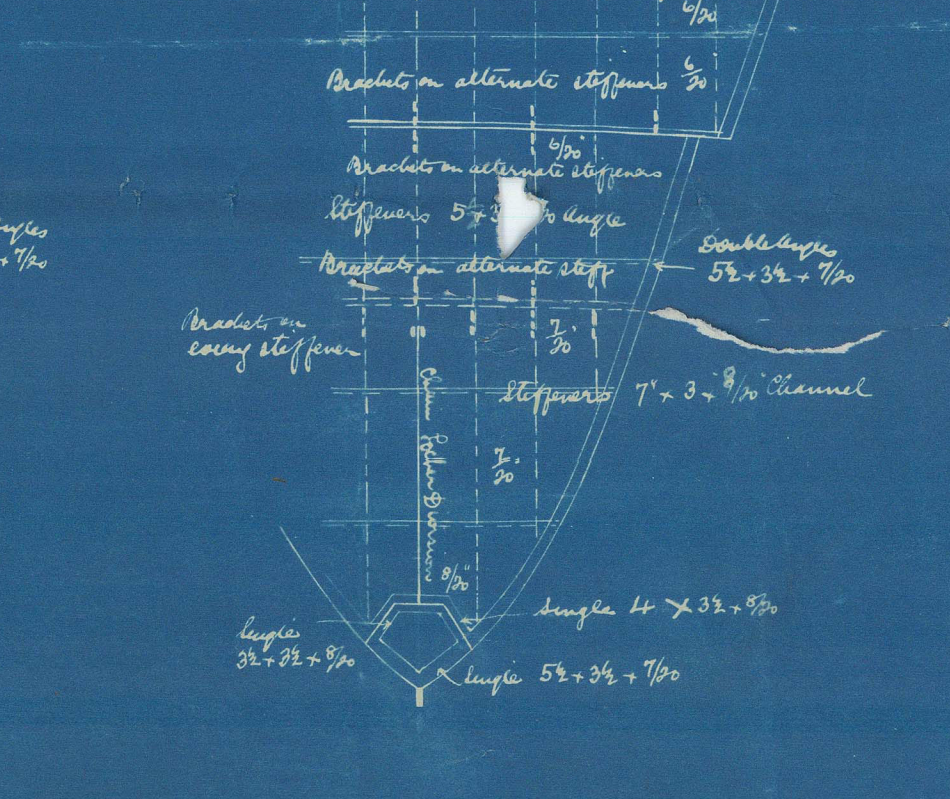 6/20
Brackets on alternate stiffeners 6/20
6/20"
Brackets on alternate stiffeners
Stiffeners 5 x 3 Angle
Double Angles
5½ x 3½ x 7/20
+ 7/20
Brackets on alternate stiff
Brackets on
every stiffener
7/20"
Stiffeners 7" x 3 x 8/20" Channel
Chain Locker Division
7/20"
8/20"
Single 4 X 3½ x 8/20
Single
3½ x 3½ x 8/20
Single 5½ x 3½ x 7/20